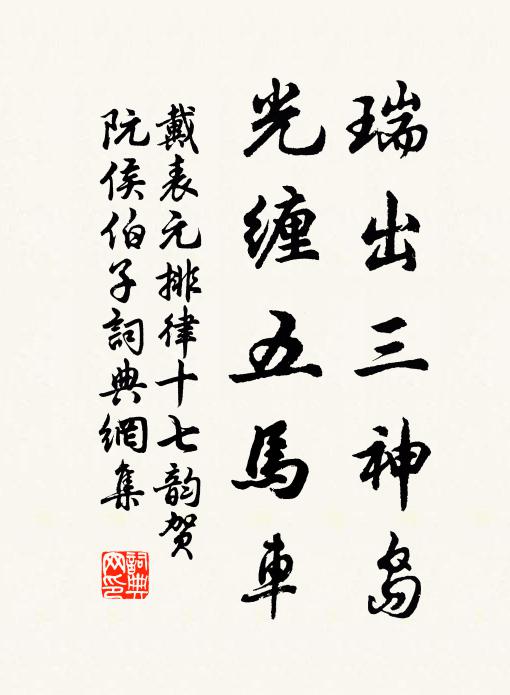 瑞出三神岛
光缠五馬車
戴表元排律十七韵贺
阮侯伯子詞典網集
詞典网印